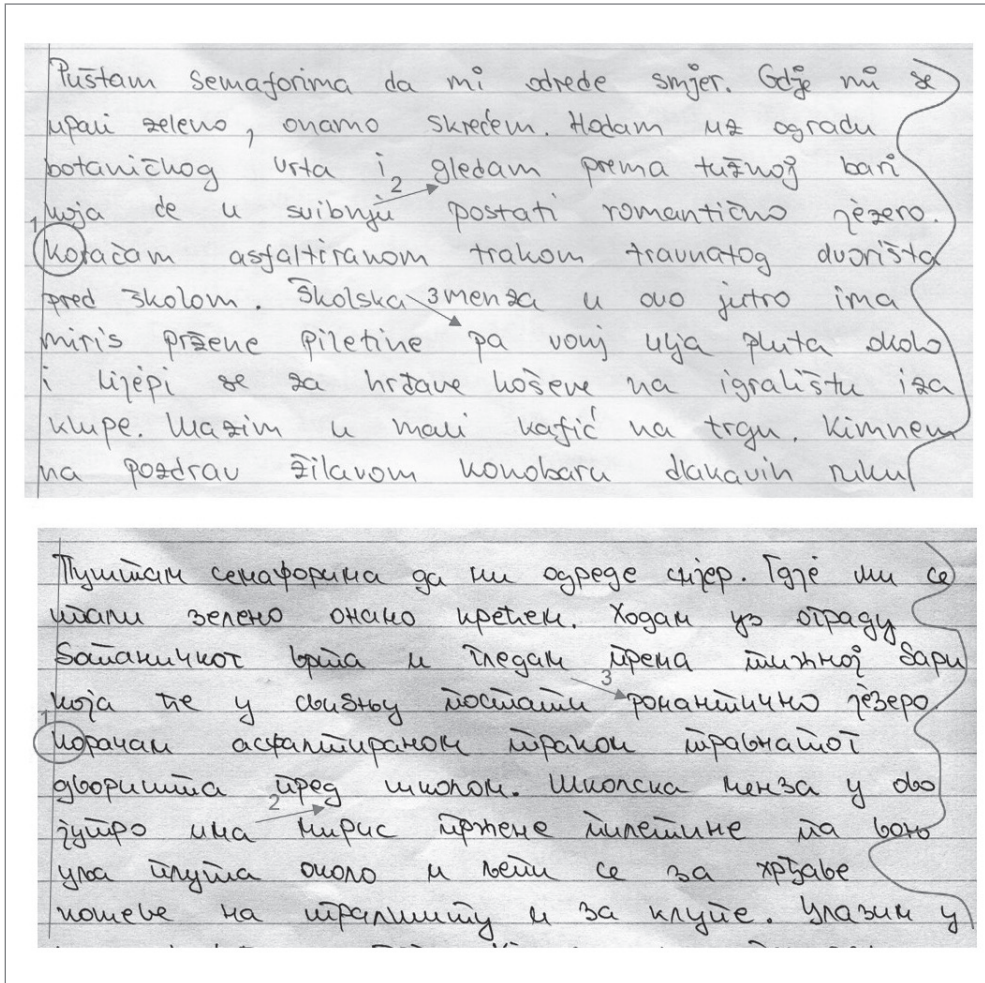 Puštam semaforima da mi odrede smjer. Gdje mi se
upali zeleno, onamo skrećem. Hodam uz ogradu
botaničkog vrta i gledam prema tužnoj bari
2
koja će u svibnju postati romantično jezero.
1
Koračam asfaltiranom trakom travnatog dvorišta
pred školom. Školska 3 menza u ovo jutro ima
miris pržene piletine pa vonj ulja pluta okolo
i lijepi se za hrđave koševe na igralištu iza
klupe. Ulazim u mali kafić na trgu. Kimnem
na pozdrav žilavom konobaru dlakavih ruku
Пуштам семафорима да ми одреде смјер. Гдје ми се
упали зелено онамо крећем. Ходам уз ограду
ботаничког врта и гледам према тижној бари
3
која ће у свибњу постати романтично језеро.
1
Корачам асфалтираном траком травнатог
дворишта пред школом. Школска менза у ово
2
јутро има мирис пржене пилетине па воњ
уља плута около и љепи се за хрђаве
кошеве на игралишту и за клупе. Улазим у